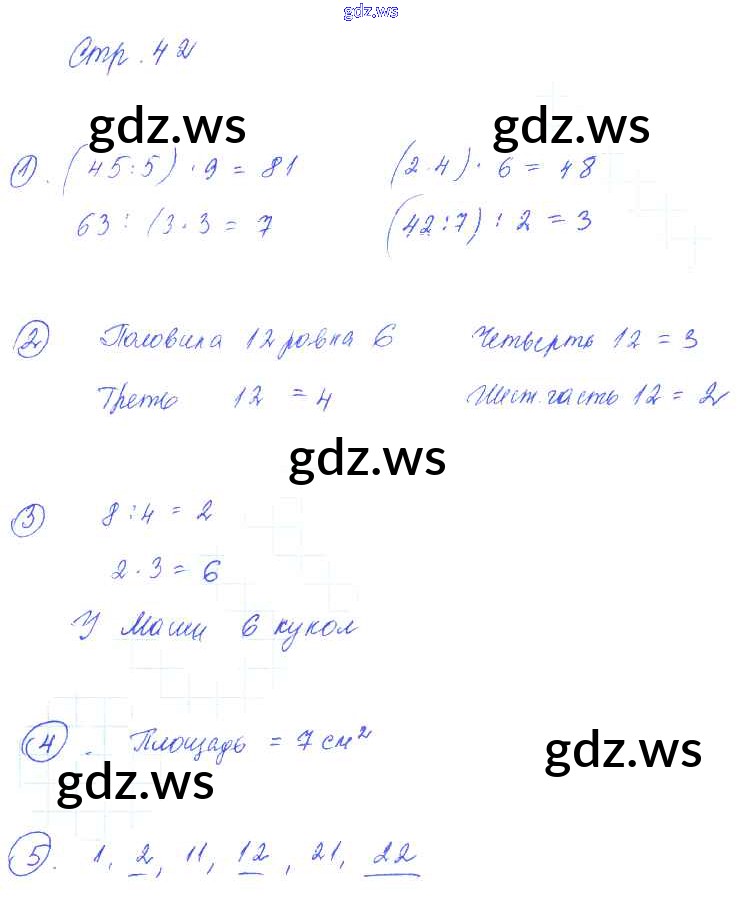 gdz.ws
Стр. 42
gdz.ws gdz.ws
1. (45:5) · 9 = 81 (2·4) · 6 = 48
63 : (3·3 = 7 (42:7) : 2 = 3
2 Половина 12 равна 6 Четверть 12 = 3
Треть 12 = 4 Шест. часть 12 = 2
gdz.ws
3 8:4 = 2
2·3 = 6
У Маши 6 кукол
4. Площадь = 7 см²
gdz.ws gdz.ws
5. 1, 2, 11, 12, 21, 22